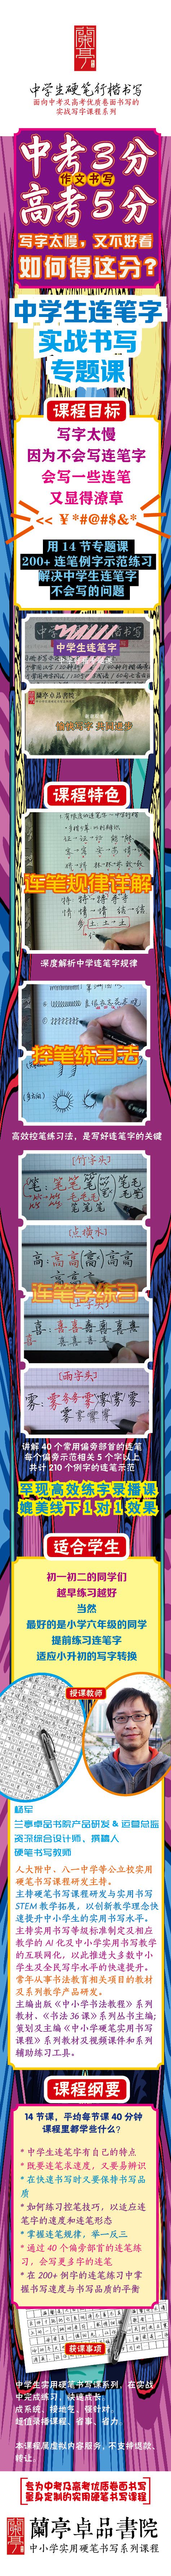 蘭亭
中学生硬笔行楷书写
面向中考及高考优质卷面书写的
实战写字课程系列
中考3分
作文书写
高考5分
写字太慢，又不好看
如何得这分？
中学生连笔字
实战书写
专题课
课程目标
写字太慢
因为不会写连笔字
会写一些连笔
又显得潦草
<< ￥*#@#$&*
用 14 节专题课
200+ 连笔例字示范练习
解决中学生连笔字
不会写的问题
中学生连笔字
蘭亭卓品書院
愉快写字 共同进步
课程特色
连笔规律详解
深度解析中学连笔字规律
控笔练习法
高效控笔练习法，是写好连笔字的关键
[竹字头]
笔：
[点横水]
高：
连笔字练习
喜：
[雨字头]
雾：
讲解 40 个常用偏旁部首的连笔
每个偏旁示范相关 5 个字以上
共计 210 个例字的连笔示范
罕现高效练字录播课
媲美线下 1 对 1 效果
适合学生
初一初二的同学们
越早练习越好
当然
最好的是小学六年级的同学
提前练习连笔字
适应小升初的写字转换
授课教师
杨军
兰亭卓品书院产品研发 & 运营总监
资深综合设计师，撰稿人
硬笔书写教师
人大附中、八一中学等公立校实用
硬笔书写课程研发主持。
主持硬笔书写课程研发与实用书写
STEM 教学拓展，以创新教学理念快
速提升中小学生的实用书写水平。
主持实用书写等级标准制定及相应
教学的 AI 化及中小学实用书写教学
的互联网化，以此推进大多数中小
学生及全民写字水平的快速提升。
常年从事书法教育相关项目的教材
及系列教学产品研发。
主编出版《中小学书法教程》系列
教材、《书法 36 课》系列丛书主编；
策划及主编《中小学硬笔实用书写
课程》系列教材及视频课件和系列
辅助练习工具。
课程纲要
14 节课，平均每节课 40 分钟
课程里都学些什么？
* 中学生连笔字有自己的特点
* 既要连笔求速度，又要易辨识
* 在快速书写时又要保持书写品
质
* 如何练习控笔技巧，以适应连
笔字的速度和连笔形态
* 掌握连笔规律，举一反三
* 通过 40 个偏旁部首的连笔练
习，会写更多字的连笔
* 在 200+ 例字的连笔练习中掌
握书写速度与书写品质的平衡
获课事项
中学生实用硬笔书写课系列，在实战
中完成练习，快速成长。
成系统、接地气、强针对
超值录播课程、省事、省力。
本课程属虚拟内容服务，不支持退款、
转让。
专为中考及高考优质卷面书写
量身定制的实用硬笔书写课程
蘭亭
蘭亭卓品書院
中小学实用硬笔书写系列课程